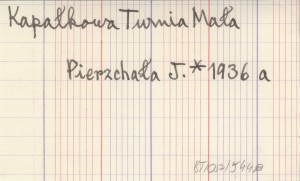 Kapałkowa Turnia Mała
Pierzchała J. * 1936 a